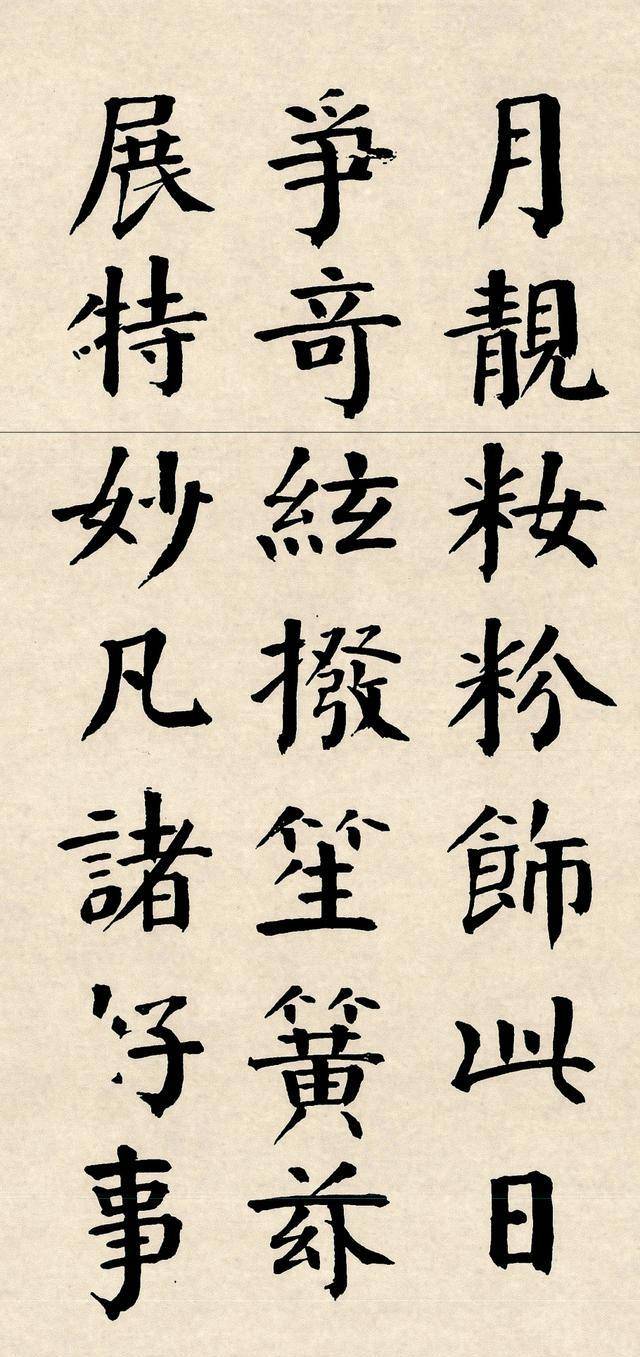 月靚籹粉飾此日
爭奇絃撥笙簧
展特妙凡諸事